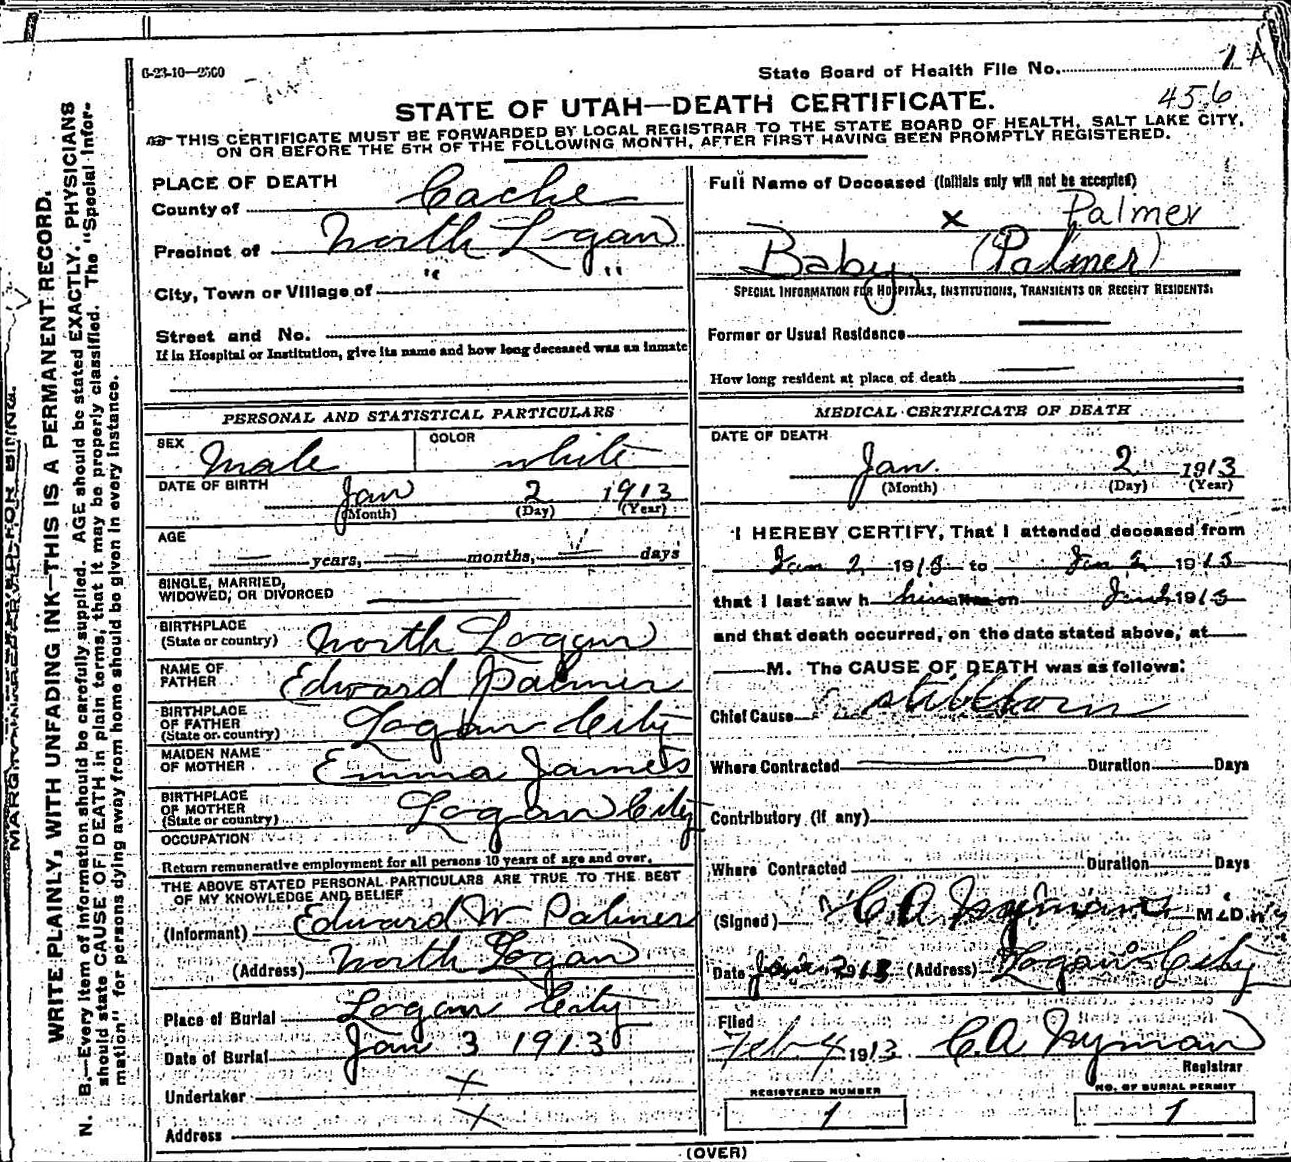 6-23-10—2500
State Board of Health File No. 1 A
456
STATE OF UTAH—DEATH CERTIFICATE.
THIS CERTIFICATE MUST BE FORWARDED BY LOCAL REGISTRAR TO THE STATE BOARD OF HEALTH, SALT LAKE CITY,
ON OR BEFORE THE 5TH OF THE FOLLOWING MONTH, AFTER FIRST HAVING BEEN PROMPTLY REGISTERED.
MARGIN RESERVED FOR BINDING.
WRITE PLAINLY, WITH UNFADING INK—THIS IS A PERMANENT RECORD.
N. B.—Every item of information should be carefully supplied. AGE should be stated EXACTLY. PHYSICIANS
should state CAUSE OF DEATH in plain terms, that it may be properly classified. The "Special Infor-
mation" for persons dying away from home should be given in every instance.
PLACE OF DEATH
County of Cache
Precinct of North Logan
City, Town or Village of " "
Street and No.
If in Hospital or Institution, give its name and how long deceased was an inmate
Full Name of Deceased (Initials only will not be accepted)
x Palmer
Baby (Palmer)
SPECIAL INFORMATION FOR HOSPITALS, INSTITUTIONS, TRANSIENTS OR RECENT RESIDENTS:
Former or Usual Residence
How long resident at place of death
PERSONAL AND STATISTICAL PARTICULARS
SEX Male COLOR white
DATE OF BIRTH Jan 2 1913
(Month) (Day) (Year)
AGE
years, months, days
SINGLE, MARRIED,
WIDOWED, OR DIVORCED
BIRTHPLACE
(State or country) North Logan
NAME OF
FATHER Edward Palmer
BIRTHPLACE
OF FATHER
(State or country) Logan City
MAIDEN NAME
OF MOTHER Emma James
BIRTHPLACE
OF MOTHER
(State or country) Logan City
OCCUPATION
Return remunerative employment for all persons 10 years of age and over.
THE ABOVE STATED PERSONAL PARTICULARS ARE TRUE TO THE BEST
OF MY KNOWLEDGE AND BELIEF
(Informant) Edward W Palmer
(Address) North Logan
Place of Burial Logan City
Date of Burial Jan 3 1913
Undertaker x
Address x
MEDICAL CERTIFICATE OF DEATH
DATE OF DEATH
Jan. 2 1913
(Month) (Day) (Year)
I HEREBY CERTIFY, That I attended deceased from
Jan 2 1913 to Jan 2 1913
that I last saw h him alive on Jan 2 1913
and that death occurred, on the date stated above, at
M. The CAUSE OF DEATH was as follows:
Chief Cause stillborn
Where Contracted Duration Days
Contributory (if any)
Where Contracted Duration Days
(Signed) C A Nyman M. D.
Date Jan 2 1913 (Address) Logan City
Filed
Feb 4 1913 C. A Nyman
Registrar
REGISTERED NUMBER
1
NO. OF BURIAL PERMIT
1
(OVER)